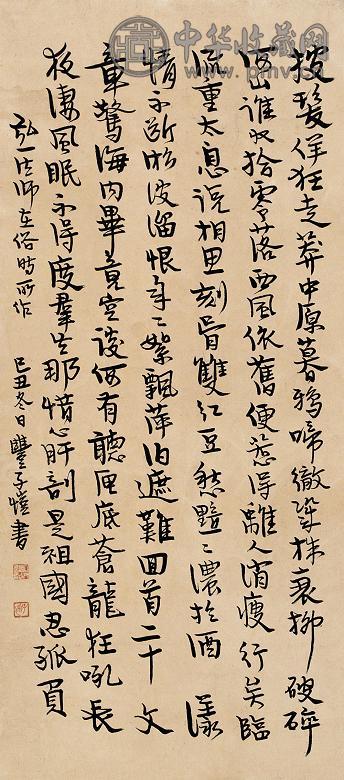 披髮佯狂走莽中原暮鴉啼徹幾株衰柳破碎
河山誰收拾零落西風依舊便惹得離人消瘦行矣臨
流重太息說相思刻骨雙紅豆愁黯黯濃於酒 漾
情不斷淞波溜恨年年絮飄萍泊遮難回首二十文
章驚海內畢竟空談何有聽匣底蒼龍狂吼長
夜淒風眠不得度羣生那惜心肝剖是祖國忍孤負
弘一法師在俗時所作 己丑冬日豐子愷書
中华收藏网
www.pmv.cn